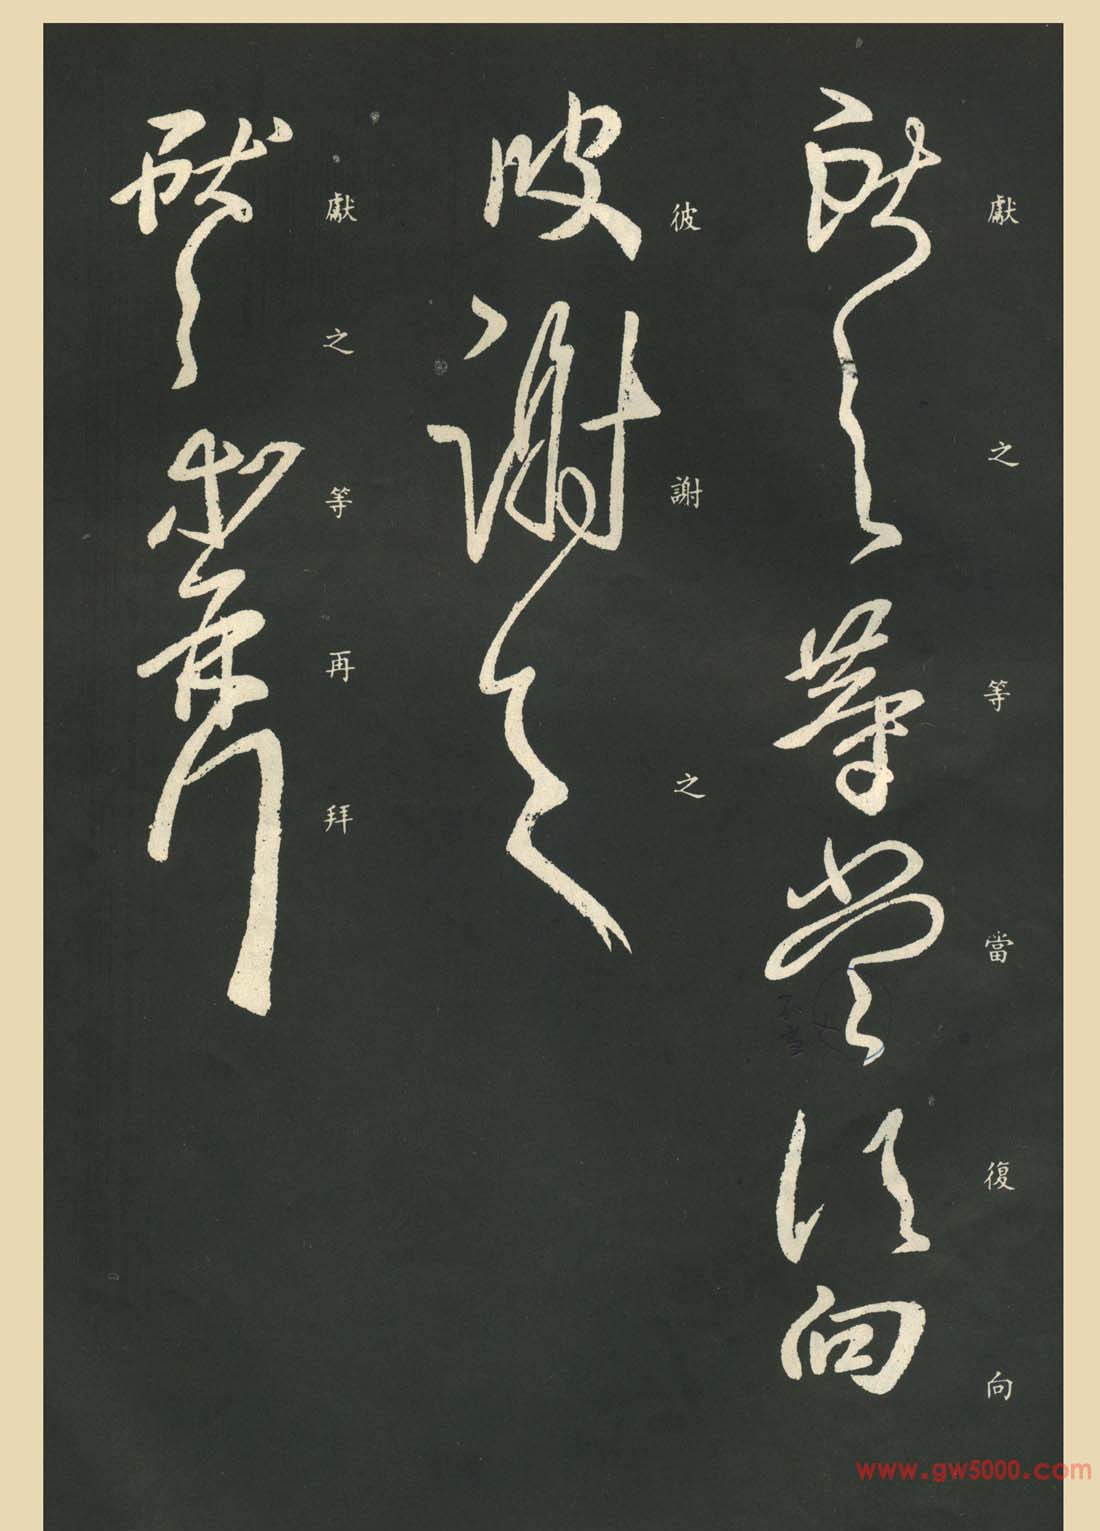 獻之等當復向
彼謝之
獻之等再拜
www.gw5000.com